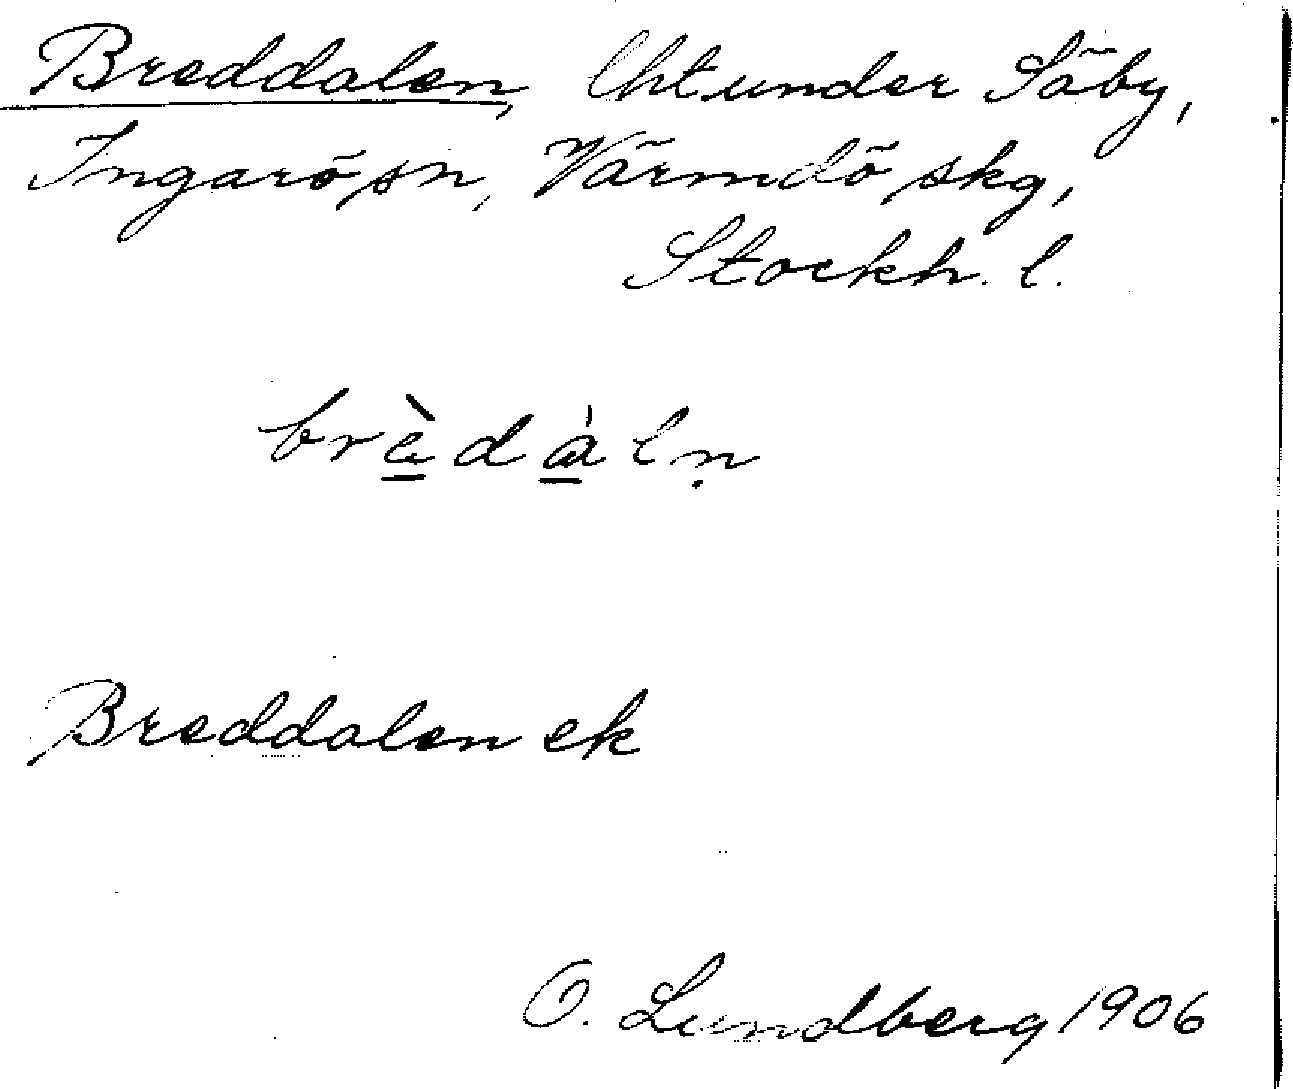 Breddalen, lht under Säby,
Ingarö sn, Värmdö skg,
Stockh. l.
brèdàlṇ
Breddalen ek
O. Lundberg 1906